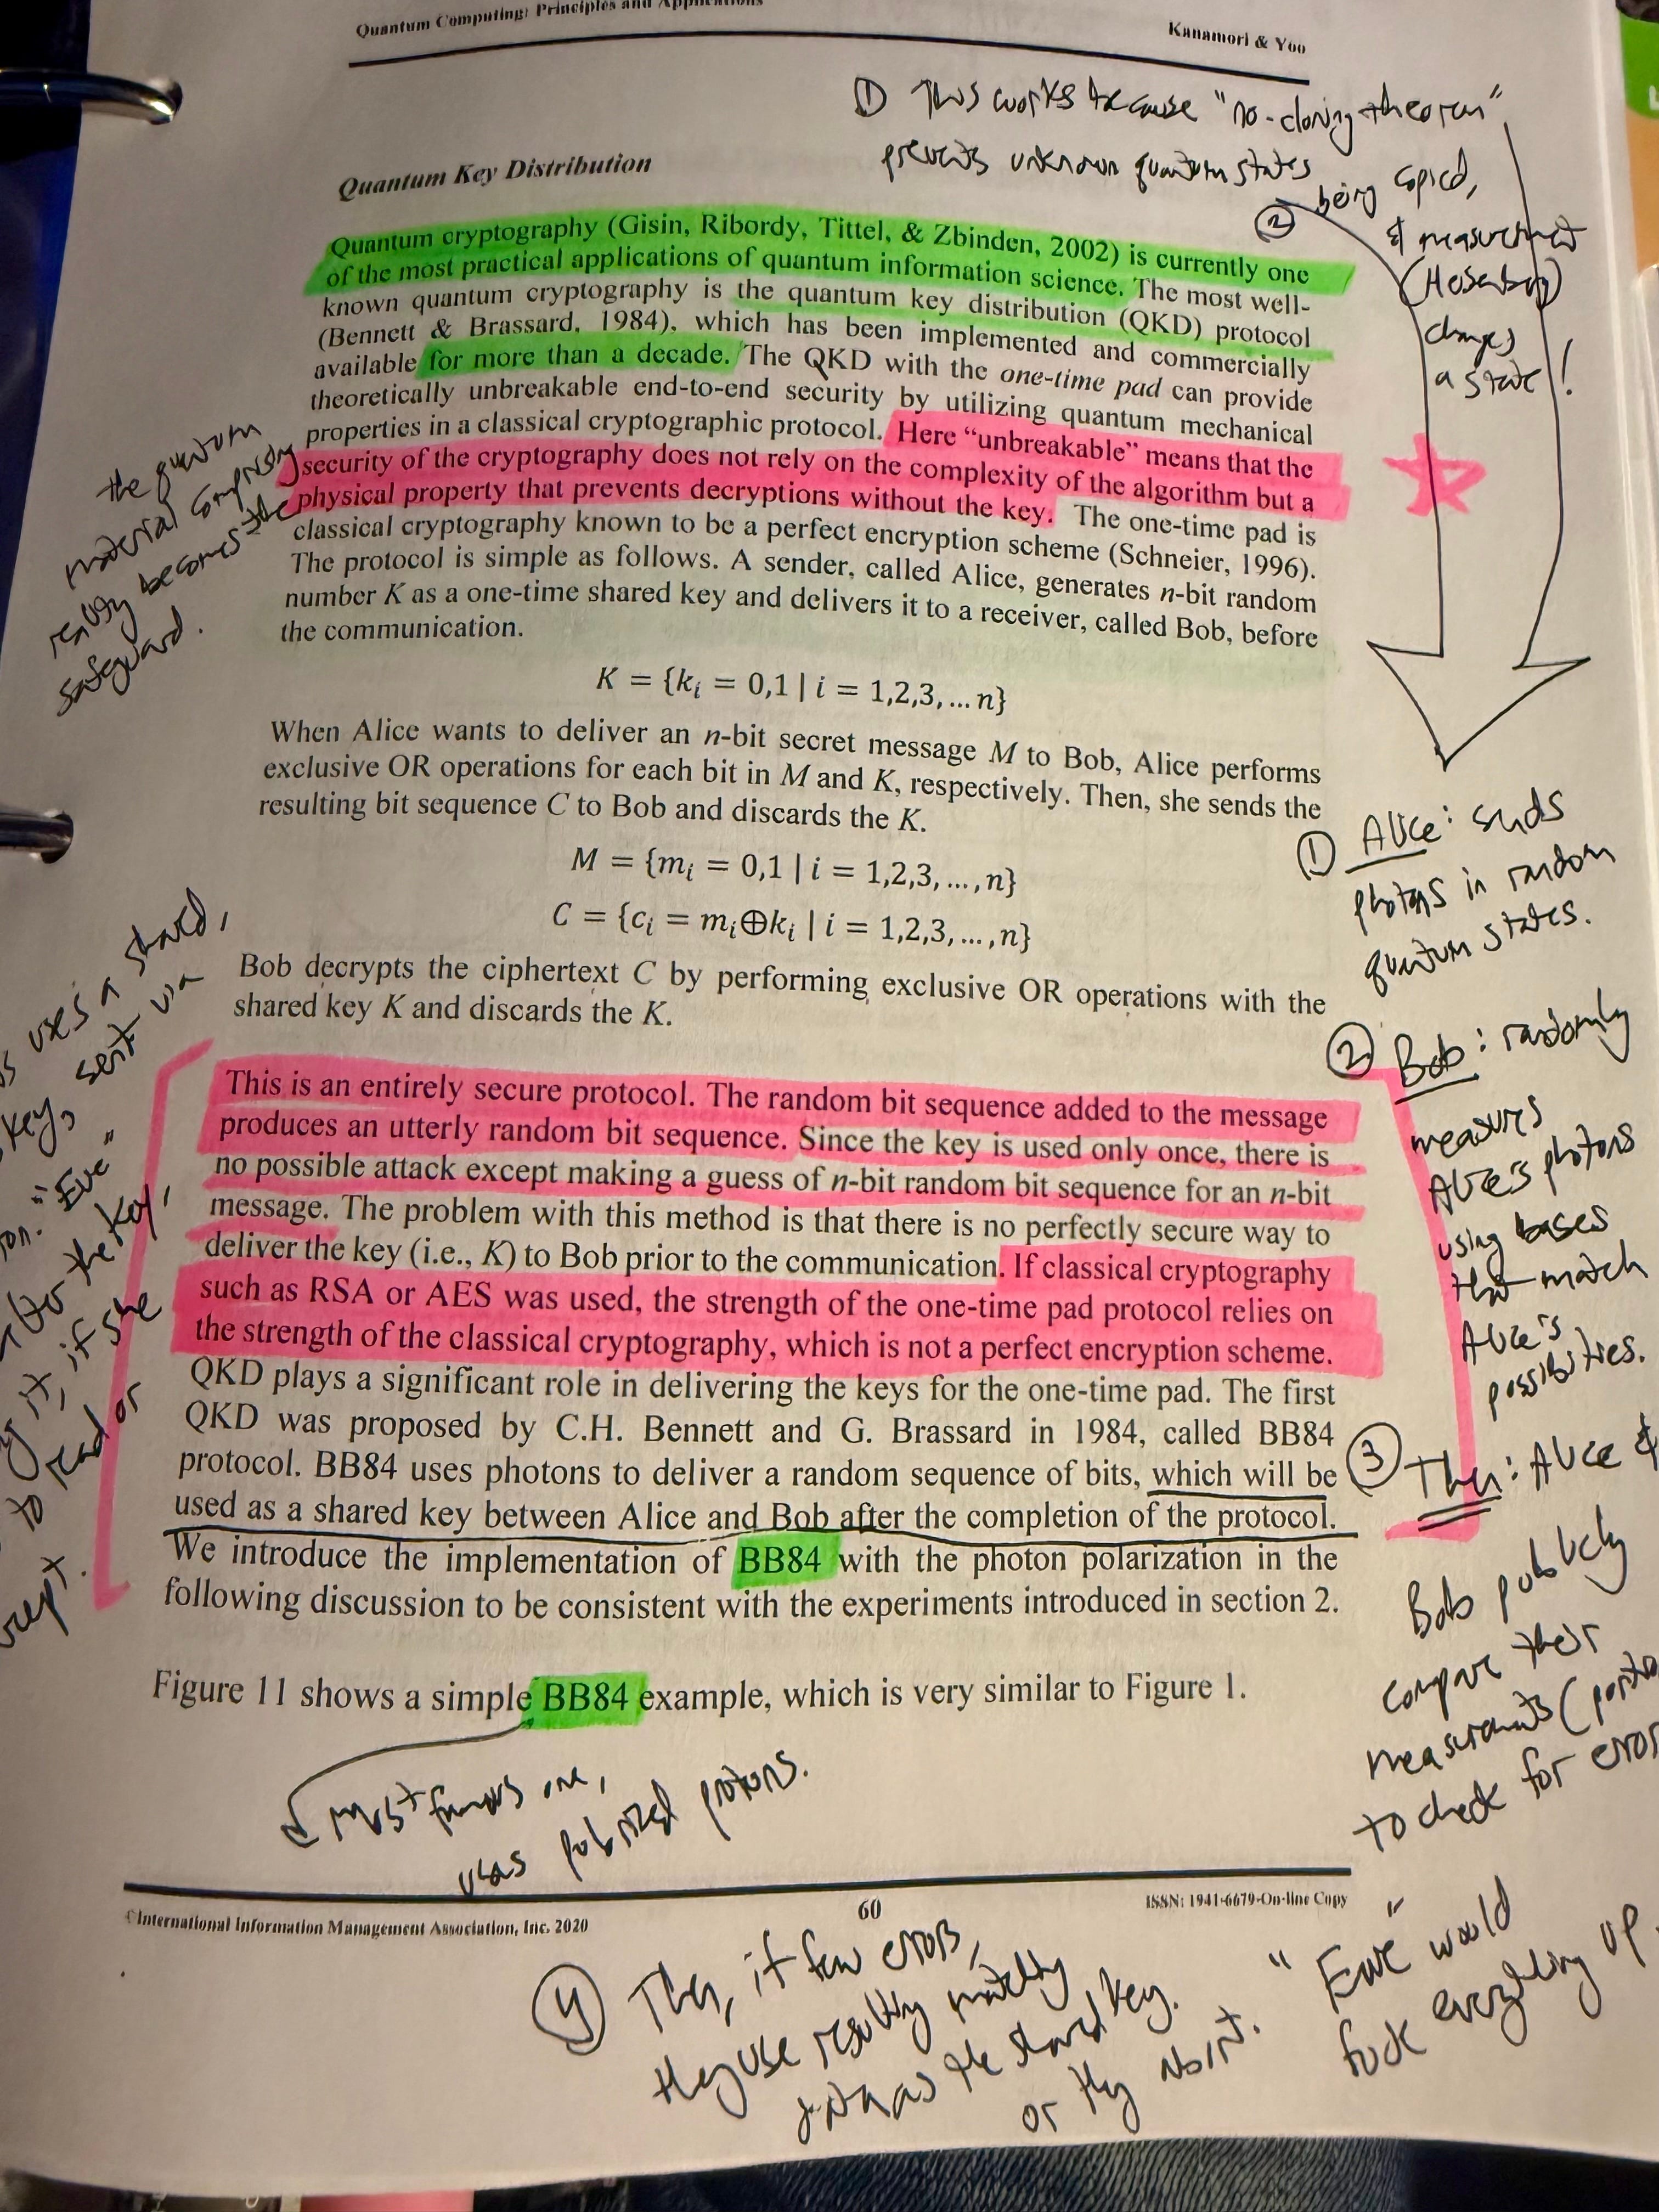 Quantum Computing: Principles and Applications
Kanamori & Yoo
① This works because "no-cloning theorem"
prevents unknown quantum states
② being copied,
& measurement
changes
a state!
Quantum Key Distribution
Quantum cryptography (Gisin, Ribordy, Tittel, & Zbinden, 2002) is currently one
of the most practical applications of quantum information science. The most well-
known quantum cryptography is the quantum key distribution (QKD) protocol
(Bennett & Brassard, 1984), which has been implemented and commercially
available for more than a decade. The QKD with the one-time pad can provide
theoretically unbreakable end-to-end security by utilizing quantum mechanical
properties in a classical cryptographic protocol. Here "unbreakable" means that the
security of the cryptography does not rely on the complexity of the algorithm but a
physical property that prevents decryptions without the key. The one-time pad is
classical cryptography known to be a perfect encryption scheme (Schneier, 1996).
The protocol is simple as follows. A sender, called Alice, generates n-bit random
number K as a one-time shared key and delivers it to a receiver, called Bob, before
the communication.
the quantum
material comprising
reality becomes the
safeguard.
K = {kᵢ = 0,1 | i = 1,2,3, … n}
When Alice wants to deliver an n-bit secret message M to Bob, Alice performs
exclusive OR operations for each bit in M and K, respectively. Then, she sends the
resulting bit sequence C to Bob and discards the K.
M = {mᵢ = 0,1 | i = 1,2,3, …, n}
C = {cᵢ = mᵢ⊕kᵢ | i = 1,2,3, …, n}
Bob decrypts the ciphertext C by performing exclusive OR operations with the
shared key K and discards the K.
This is an entirely secure protocol. The random bit sequence added to the message
produces an utterly random bit sequence. Since the key is used only once, there is
no possible attack except making a guess of n-bit random bit sequence for an n-bit
message. The problem with this method is that there is no perfectly secure way to
deliver the key (i.e., K) to Bob prior to the communication. If classical cryptography
such as RSA or AES was used, the strength of the one-time pad protocol relies on
the strength of the classical cryptography, which is not a perfect encryption scheme.
QKD plays a significant role in delivering the keys for the one-time pad. The first
QKD was proposed by C.H. Bennett and G. Brassard in 1984, called BB84
protocol. BB84 uses photons to deliver a random sequence of bits, which will be
used as a shared key between Alice and Bob after the completion of the protocol.
We introduce the implementation of BB84 with the photon polarization in the
following discussion to be consistent with the experiments introduced in section 2.
Figure 11 shows a simple BB84 example, which is very similar to Figure 1.
uses a shared,
key, sent via
"Eve"
the key,
it, if she
to read or
① Alice: sends
photons in random
quantum states.
② Bob: randomly
measures
Alice's photons
using bases
that match
Alice's
possibilities.
③ Then: Alice &
Bob publicly
compare their
measurements (
to check for
most famous one,
uses polarized protons.
©International Information Management Association, Inc. 2020
60
ISSN: 1941-6679-On-line Copy
④ Then, if few errors,
they use resulting matching
data as the shared key.
or they
"Eve" would
fuck everything up.